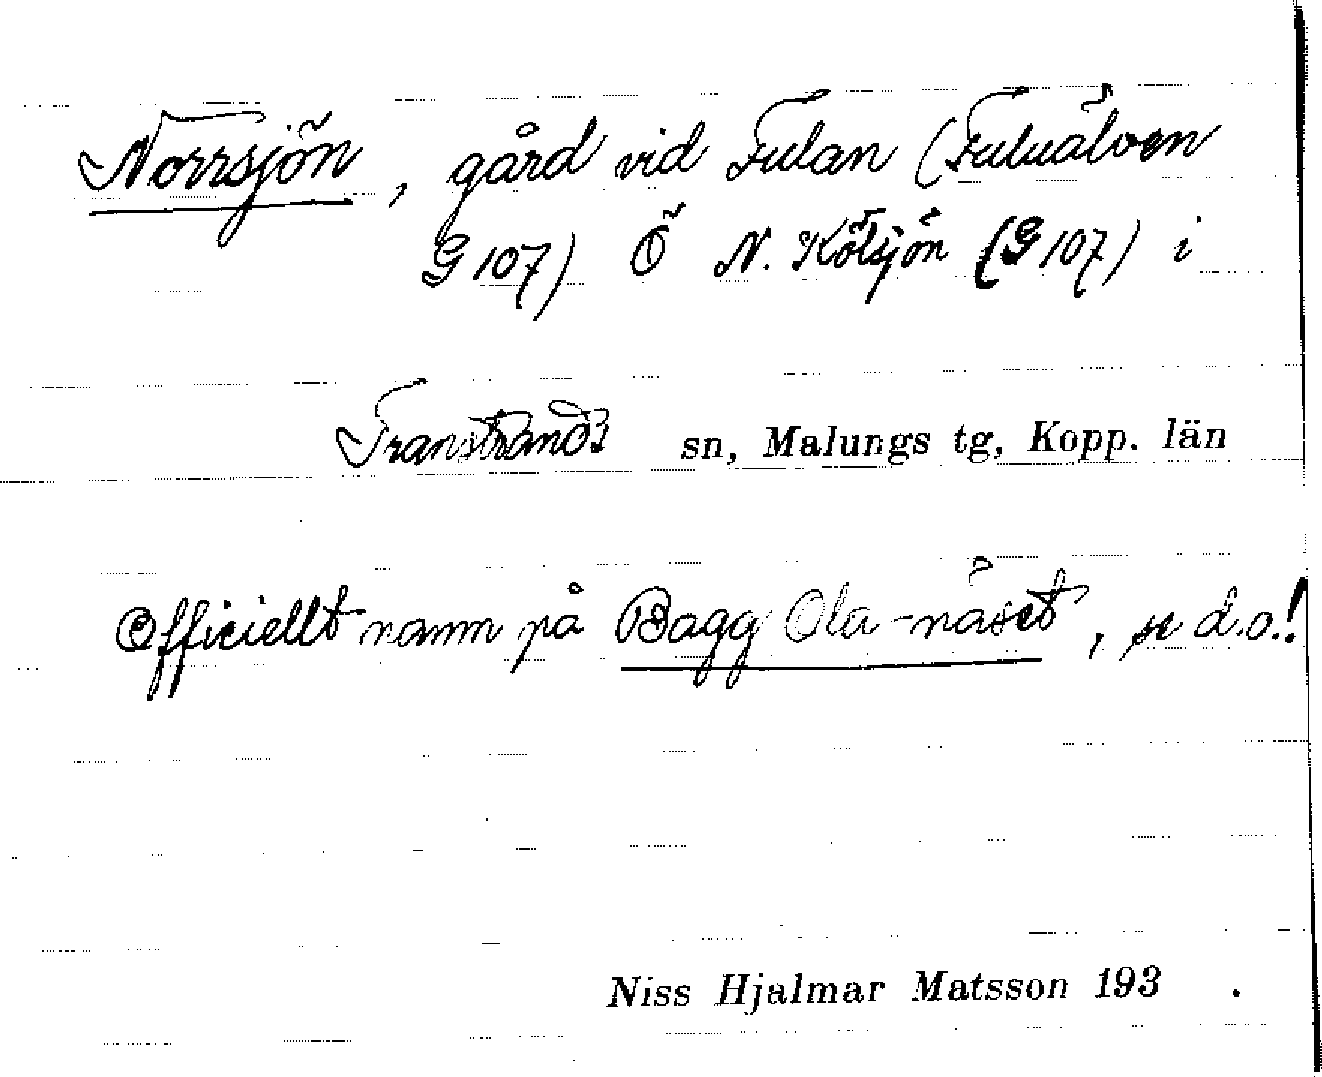 Norrsjön, gård vid Fulan (Fuluälven
G 107) Ö N. Kötsjön (G 107) i
Transtrands sn, Malungs tg, Kopp. län
Officiellt namn på Bagg Ola-näset, se d.o.!
Niss Hjalmar Matsson 193 .